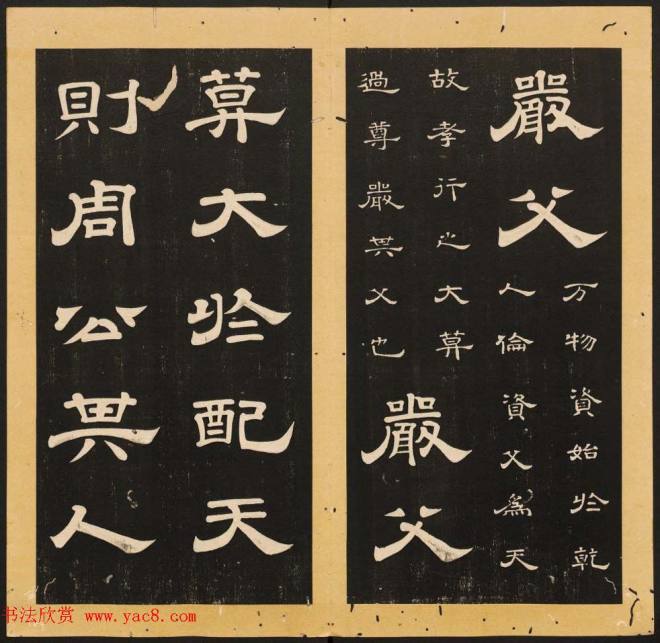 嚴父
万物資始於乾
人倫資父爲天
故孝行之大莫
過尊嚴其父也
嚴父
莫大於配天
則周公其人
书法欣赏 www.yac8.com